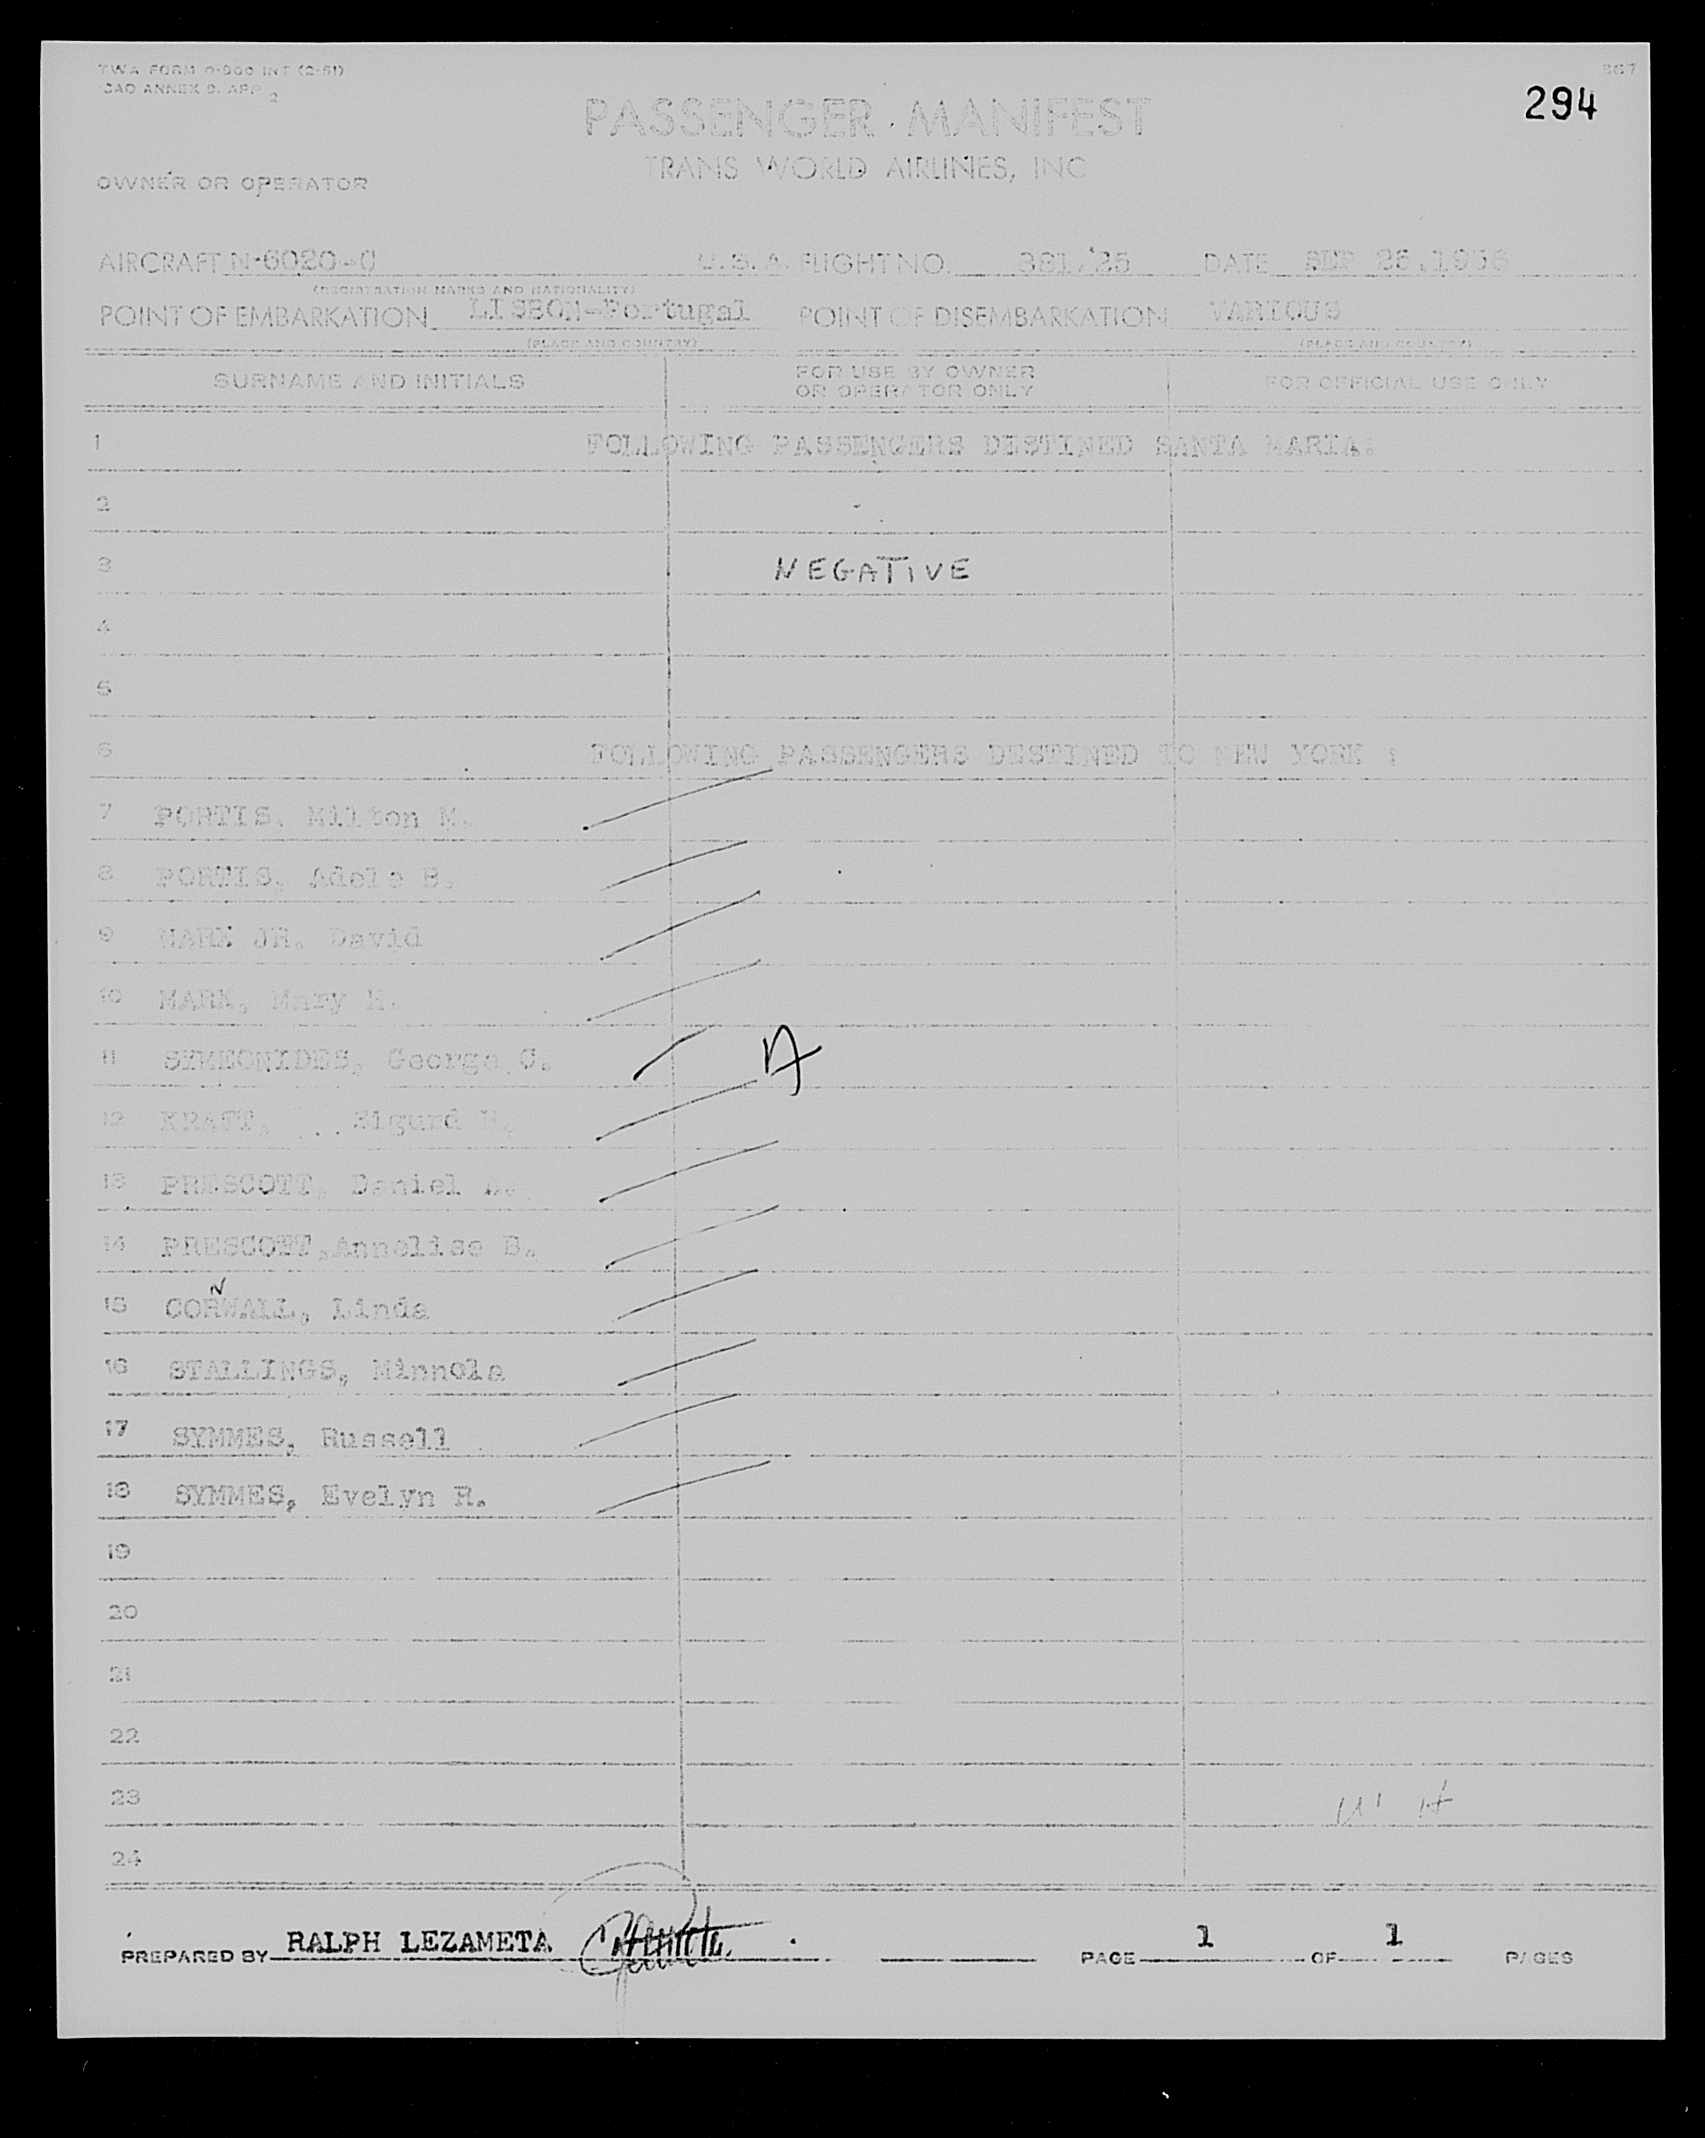 TWA FORM INT (2-51)
ICAO ANNEX 9, APP 2
294
PASSENGER MANIFEST
TRANS WORLD AIRLINES, INC
OWNER OR OPERATOR
AIRCRAFT N-6020-C U.S.A. FLIGHT NO. 931/25 DATE SEP 26, 1956
(REGISTRATION MARKS AND NATIONALITY)
POINT OF EMBARKATION LISBON-Portugal POINT OF DISEMBARKATION VARIOUS
(PLACE AND COUNTRY) (PLACE AND COUNTRY)
SURNAME AND INITIALS FOR USE BY OWNER OR OPERATOR ONLY FOR OFFICIAL USE ONLY
1 FOLLOWING PASSENGERS DESTINED SANTA MARIA:
2
3 NEGATIVE
4
5
6 FOLLOWING PASSENGERS DESTINED TO NEW YORK :
7 PORTIS, Milton M.
8 PORTIS, Adele B.
9 MARK JR. David
10 MARK, Mary
11 SYMEONIDES, George C. A
12 KRAFT, Sigurd
13 PRESCOTT, Daniel A.
14 PRESCOTT, Annelise B.
N
15 CORWALL, Linda
16 STALLINGS, Minnola
17 SYMMES, Russell
18 SYMMES, Evelyn R.
19
20
21
22
23
24
PREPARED BY RALPH LEZAMETA PAGE 1 OF 1 PAGES